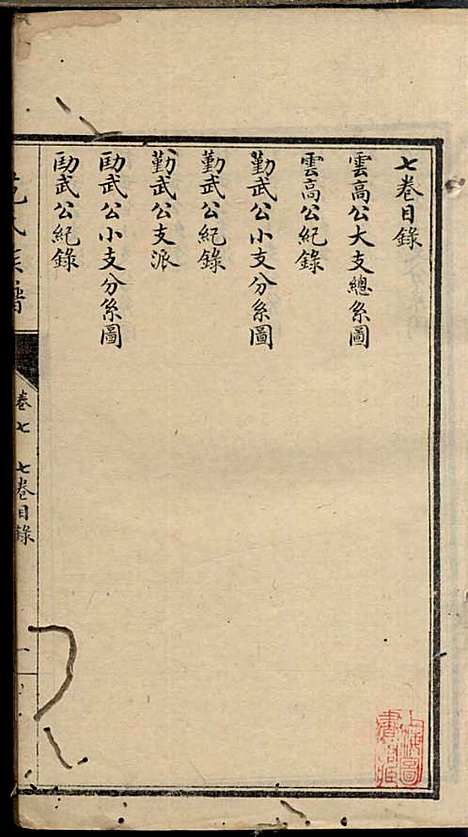 七卷目錄
雲高公大支總系圖
雲高公紀錄
勤武公小支分系圖
勤武公紀錄
勤武公支派
劻武公小支分系圖
劻武公紀錄
氏族譜
卷七
七卷目錄
一